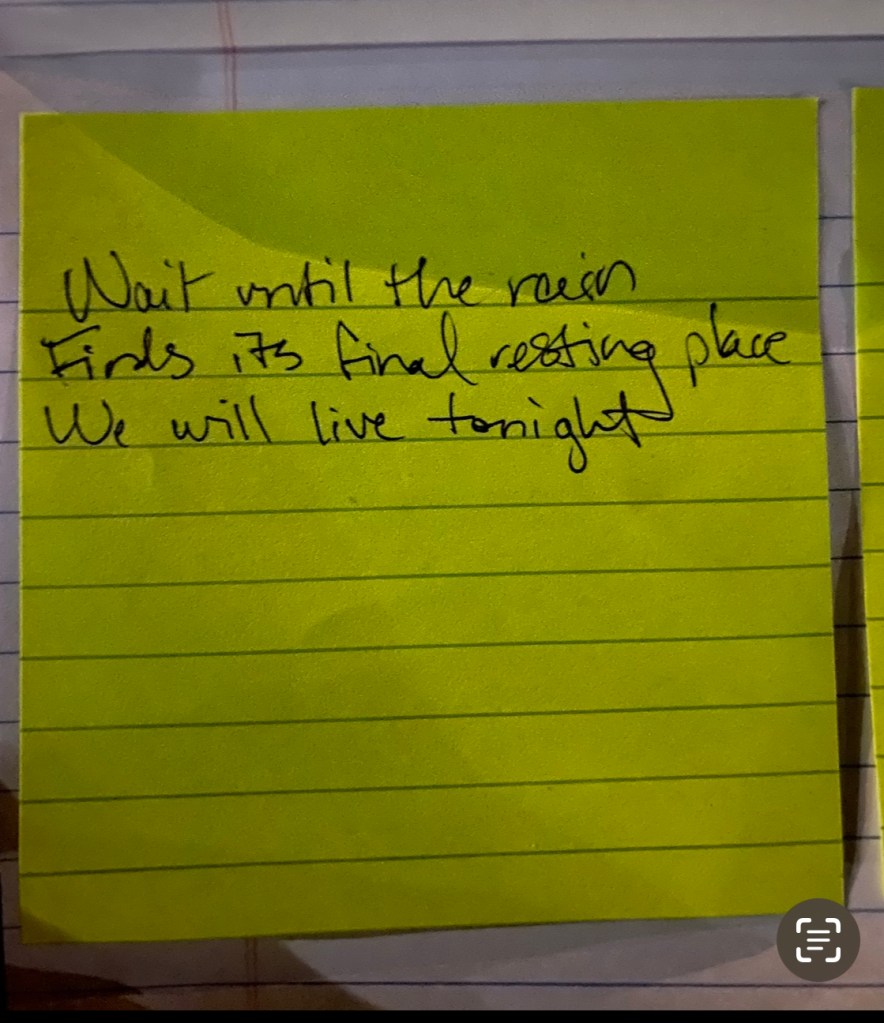 Wait until the rain
Finds its final resting place
We will live tonight